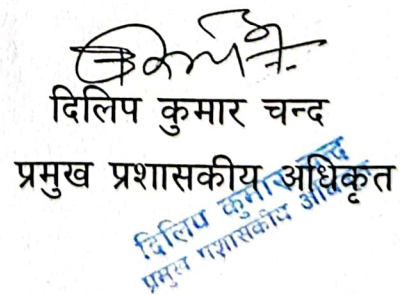 दिलिप कुमार चन्द
प्रमुख प्रशासकीय अधिकृत
दिलिप कुमार चन्द
प्रमुख प्रशासकीय